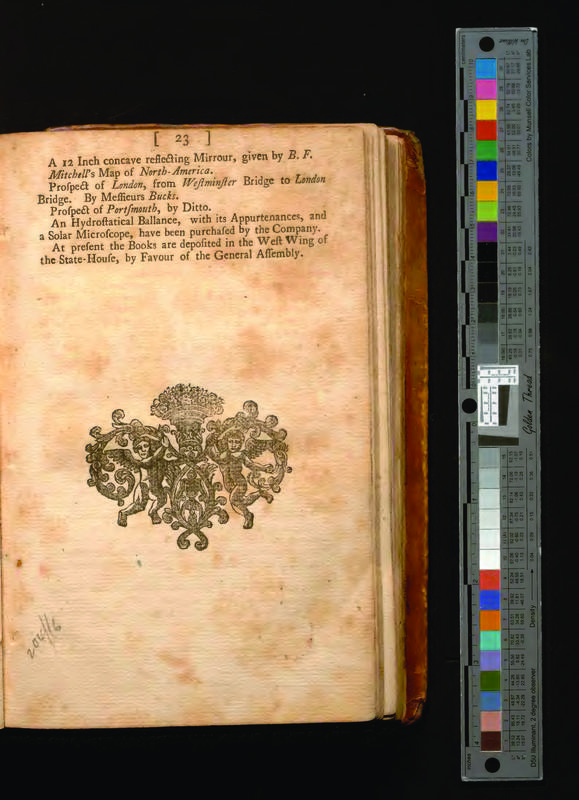 [ 23 ]
A 12 Inch concave reflecting Mirrour, given by B. F.
Mitchell's Map of North-America.
Proſpect of London, from Weſtminſter Bridge to London
Bridge. By Meſſieurs Bucks.
Proſpect of Portſmouth, by Ditto.
An Hydroſtatical Ballance, with its Appurtenances, and
a Solar Microſcope, have been purchaſed by the Company.
At preſent the Books are depoſited in the Weſt Wing of
the State-Houſe, by Favour of the General Aſſembly.
Colors by Munsell Color Services Lab
Golden Thread
Density
D50 Illuminant, 2 degree observer